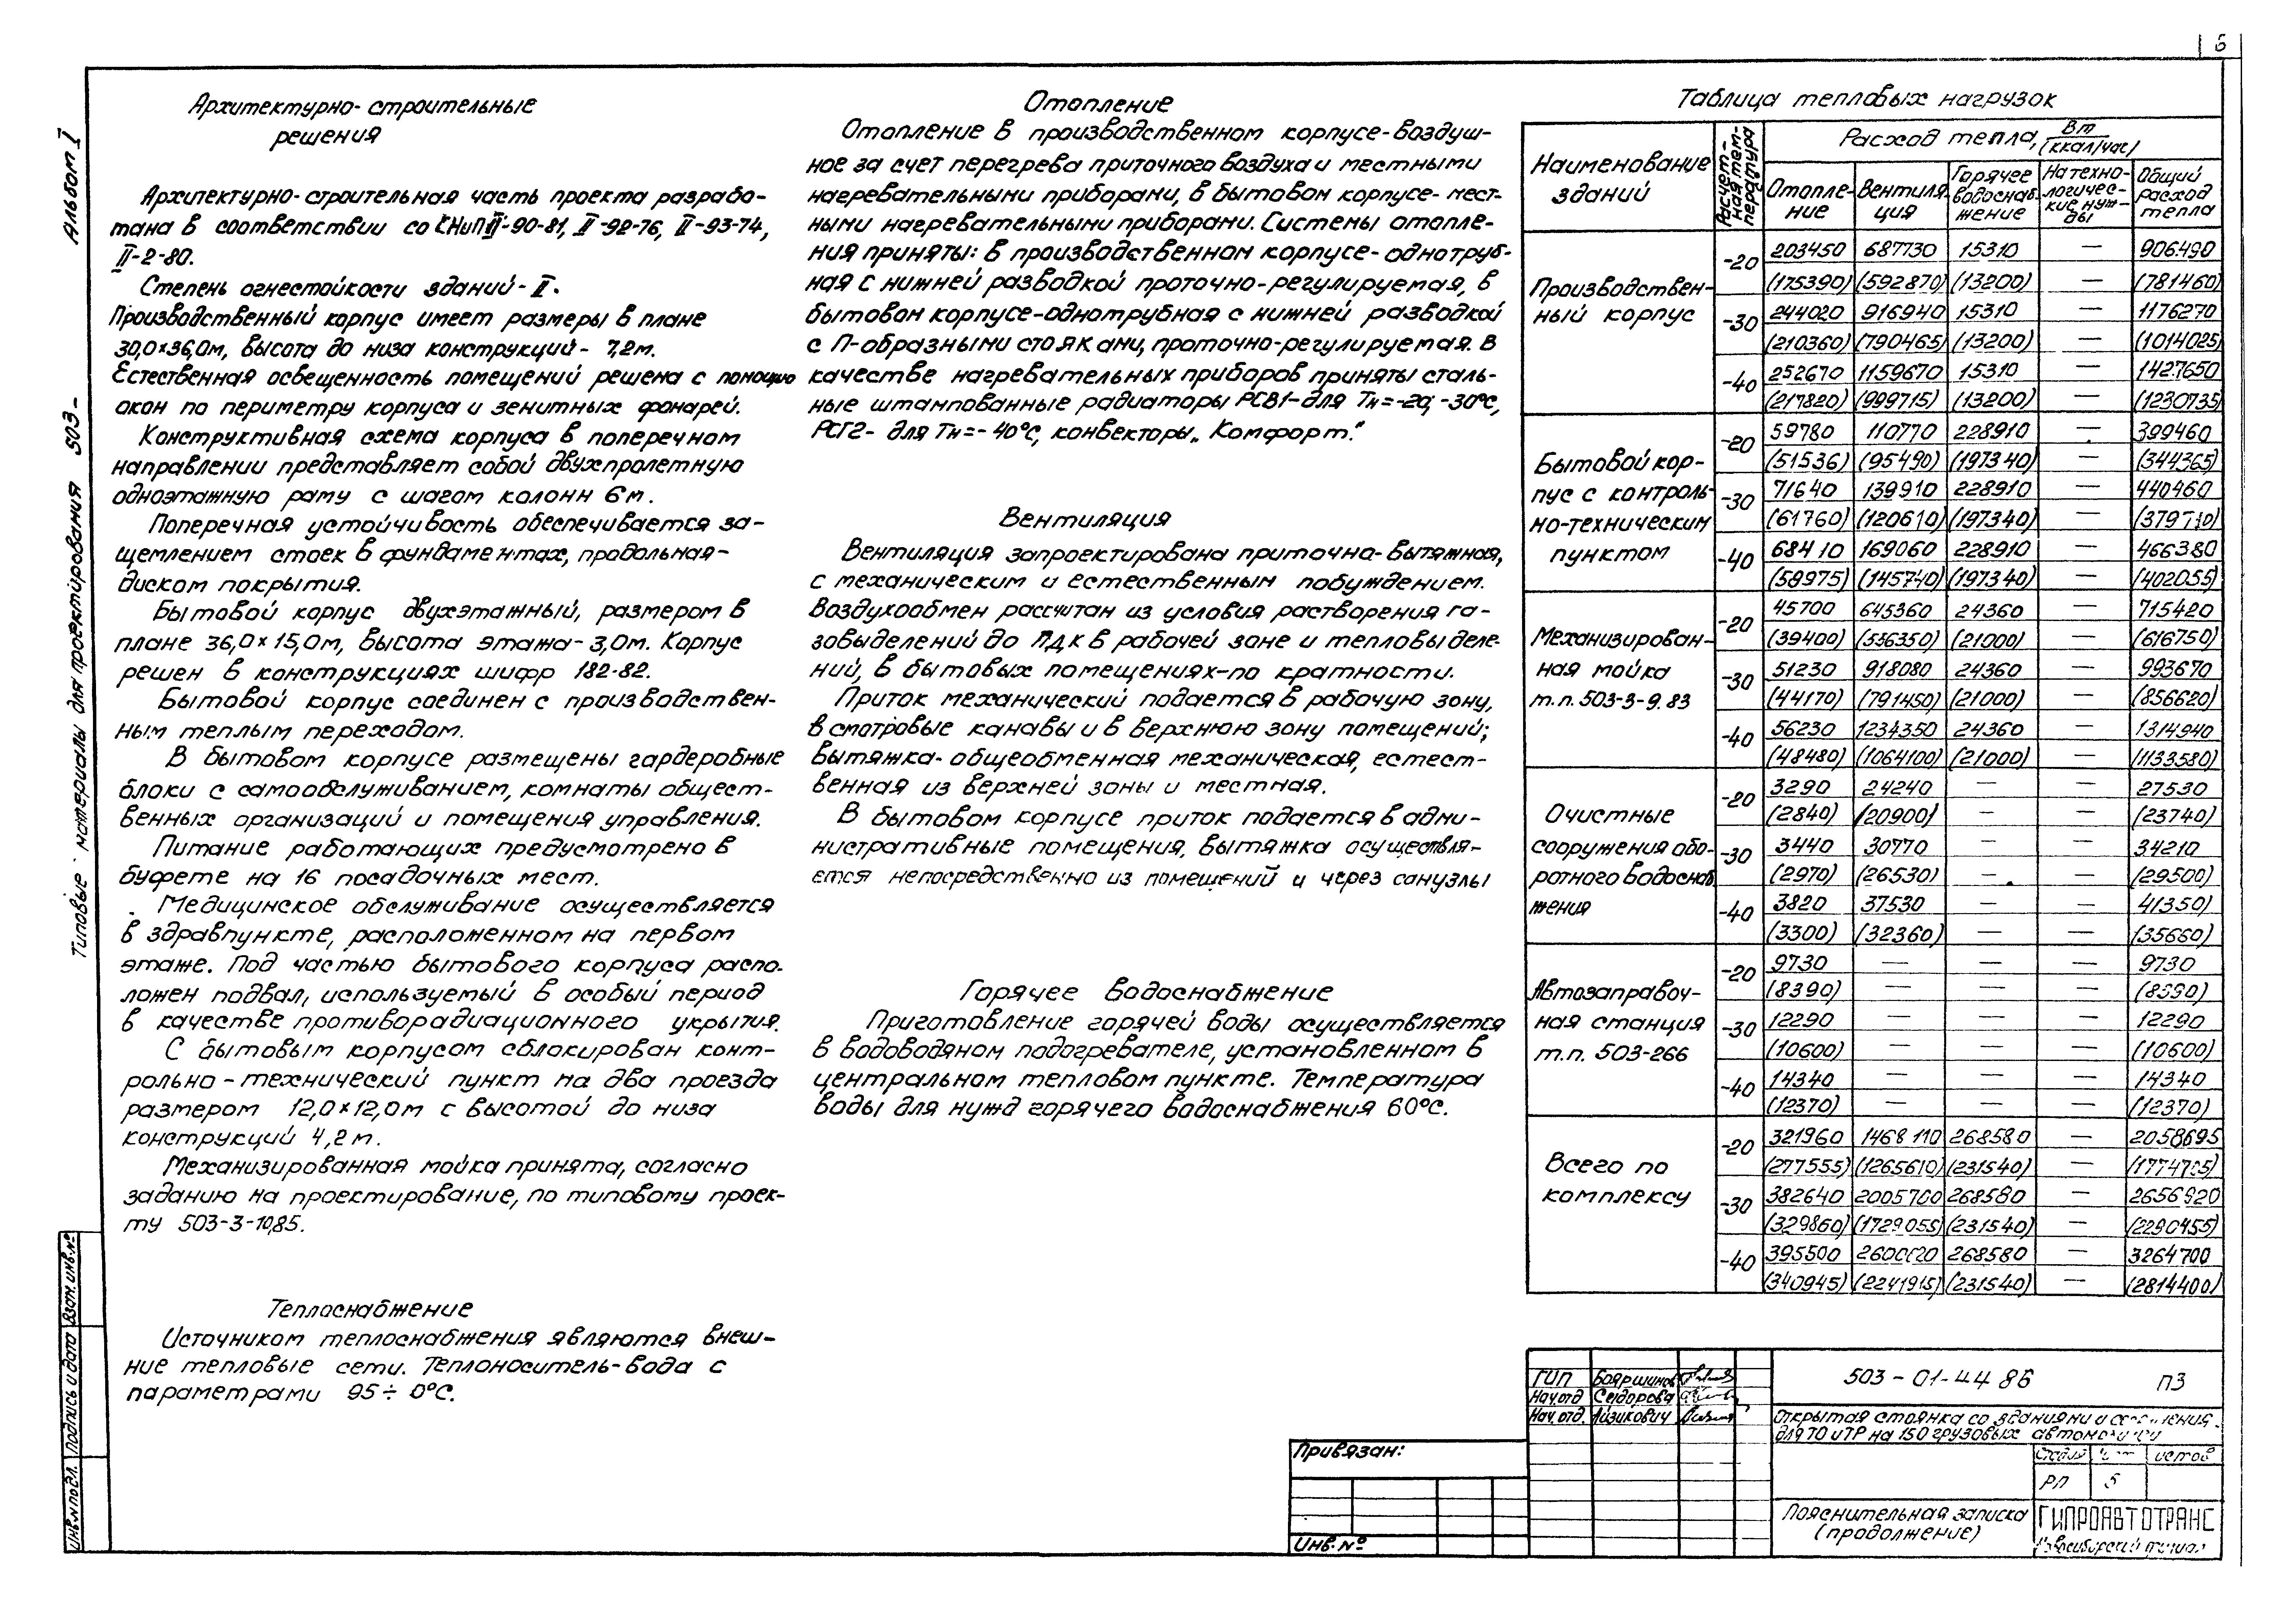 6
Альбом I
Типовые материалы для проектирования 503-
Архитектурно-строительные
решения
Архитектурно-строительная часть проекта разрабо-
тана в соответствии со СНиП II-90-81, II-92-76, II-93-74,
II-2-80.
Степень огнестойкости зданий - II.
Производственный корпус имеет размеры в плане
30,0×36,0м, высота до низа конструкций - 7,2м.
Естественная освещенность помещений решена с помощью
окон по периметру корпуса и зенитных фонарей.
Конструктивная схема корпуса в поперечном
направлении представляет собой двухпролетную
одноэтажную раму с шагом колонн 6м.
Поперечная устойчивость обеспечивается за-
щемлением стоек в фундаментах, продольная-
диском покрытия.
Бытовой корпус двухэтажный, размером в
плане 36,0×15,0м, высота этажа - 3,0м. Корпус
решен в конструкциях шифр 182-82.
Бытовой корпус соединен с производствен-
ным теплым переходом.
В бытовом корпусе размещены гардеробные
блоки с самообслуживанием, комнаты общест-
венных организаций и помещения управления.
Питание работающих предусмотрено в
буфете на 16 посадочных мест.
Медицинское обслуживание осуществляется
в здравпункте, расположенном на первом
этаже. Под частью бытового корпуса распо-
ложен подвал, используемый в особый период
в качестве противорадиационного укрытия.
С бытовым корпусом сблокирован конт-
рольно-технический пункт на два проезда
размером 12,0×12,0м с высотой до низа
конструкций 4,2м.
Механизированная мойка принята, согласно
заданию на проектирование, по типовому проек-
ту 503-3-10.85.
Теплоснабжение
Источником теплоснабжения являются внеш-
ние тепловые сети. Теплоноситель-вода с
параметрами 95÷ 0°С.
Отопление
Отопление в производственном корпусе-воздуш-
ное за счет перегрева приточного воздуха и местными
нагревательными приборами, в бытовом корпусе-мест-
ными нагревательными приборами. Системы отопле-
ния приняты: в производственном корпусе-однотруб-
ная с нижней разводкой проточно-регулируемая, в
бытовом корпусе-однотрубная с нижней разводкой
с П-образными стояками, проточно-регулируемая. В
качестве нагревательных приборов приняты сталь-
ные штампованные радиаторы РСВ1-для Тн=-20; -30°С,
РСГ2- для Тн=-40°С, конвекторы „Комфорт."
Вентиляция
Вентиляция запроектирована приточно-вытяжная,
с механическим и естественным побуждением.
Воздухообмен рассчитан из условия растворения га-
зовыделений до ПДК в рабочей зоне и тепловыделе-
ний, в бытовых помещениях-по кратности.
Приток механический подается в рабочую зону,
в смотровые канавы и в верхнюю зону помещений;
вытяжка-общеобменная механическая, естест-
венная из верхней зоны и местная.
В бытовом корпусе приток подается в адми-
нистративные помещения, вытяжка осуществля-
ется непосредственно из помещений и через санузлы
Горячее водоснабжение
Приготовление горячей воды осуществляется
в водоводяном подогревателе, установленном в
центральном тепловом пункте. Температура
воды для нужд горячего водоснабжения 60°С.
Таблица тепловых нагрузок
Наименование зданий | Расчет-ная тем-пература | Расход тепла, Вт/(ккал/час)
Отопле-ние | Вентиля-ция | Горячее водоснаб-жение | На техно-логичес-кие нуж-ды | Общий расход тепла
Производствен-ный корпус
-20 203450 687730 15310 — 906490
(175390) (592870) (13200) — (781460)
-30 244020 916940 15310 — 1176270
(210360) (790465) (13200) — (1014025)
-40 252670 1159670 15310 — 1427650
(217820) (999715) (13200) — (1230735)
Бытовой кор-пус с контроль-но-техническим пунктом
-20 59780 110770 228910 — 399460
(51536) (95490) (197340) — (344365)
-30 71640 139910 228910 — 440460
(61760) (120610) (197340) —
-40 68410 169060 228910 — 466380
(58975) (145740) (197340) — (402055)
Механизирован-ная мойка т.п. 503-3-9.83
-20 45700 645360 24360 — 715420
(39400) (556350) (21000) — (616750)
-30 51230 918080 24360 — 993670
(44170) (791450) (21000) — (856620)
-40 56230 1234350 24360 — 1314940
(48480) (1064100) (21000) — (1133580)
Очистные сооружения обо-ротного водоснаб-жения
-20 3290 24240 — — 27530
(2840) (20900) — — (23740)
-30 3440 30770 — — 34210
(2970) (26530) — — (29500)
-40 3820 37530 — — 41350)
(3300) (32360) — — (35660)
Автозаправоч-ная станция т.п. 503-266
-20 9730 — — — 9730
(8390) — — — (8390)
-30 12290 — — — 12290
(10600) — — — (10600)
-40 14340 — — — 14340
(12370) — — — (12370)
Всего по комплексу
-20 321960 1468110 268580 — 2058695
(277555) (1265610) (231540) —
-30 382640 2005700 268580 — 2656920
(329860) (1729055) (231540) — (2290455)
-40 395500 268580 — 3264700
(340945) (2241915) (231540) — (2814400)
ГИП Бояршинов
Нач.отд Сидорова
Нач.отд. Айзикович
503-01-44 86 ПЗ
Открытая стоянка со зданиями и
для ТО и ТР на 150 грузовых
Стадия
РП 5
Пояснительная записка
(продолжение)
ГИПРОАВТОТРАНС
Привязан:
Инв.№
Инв.№ подл. Подпись и дата Взам. инв.№